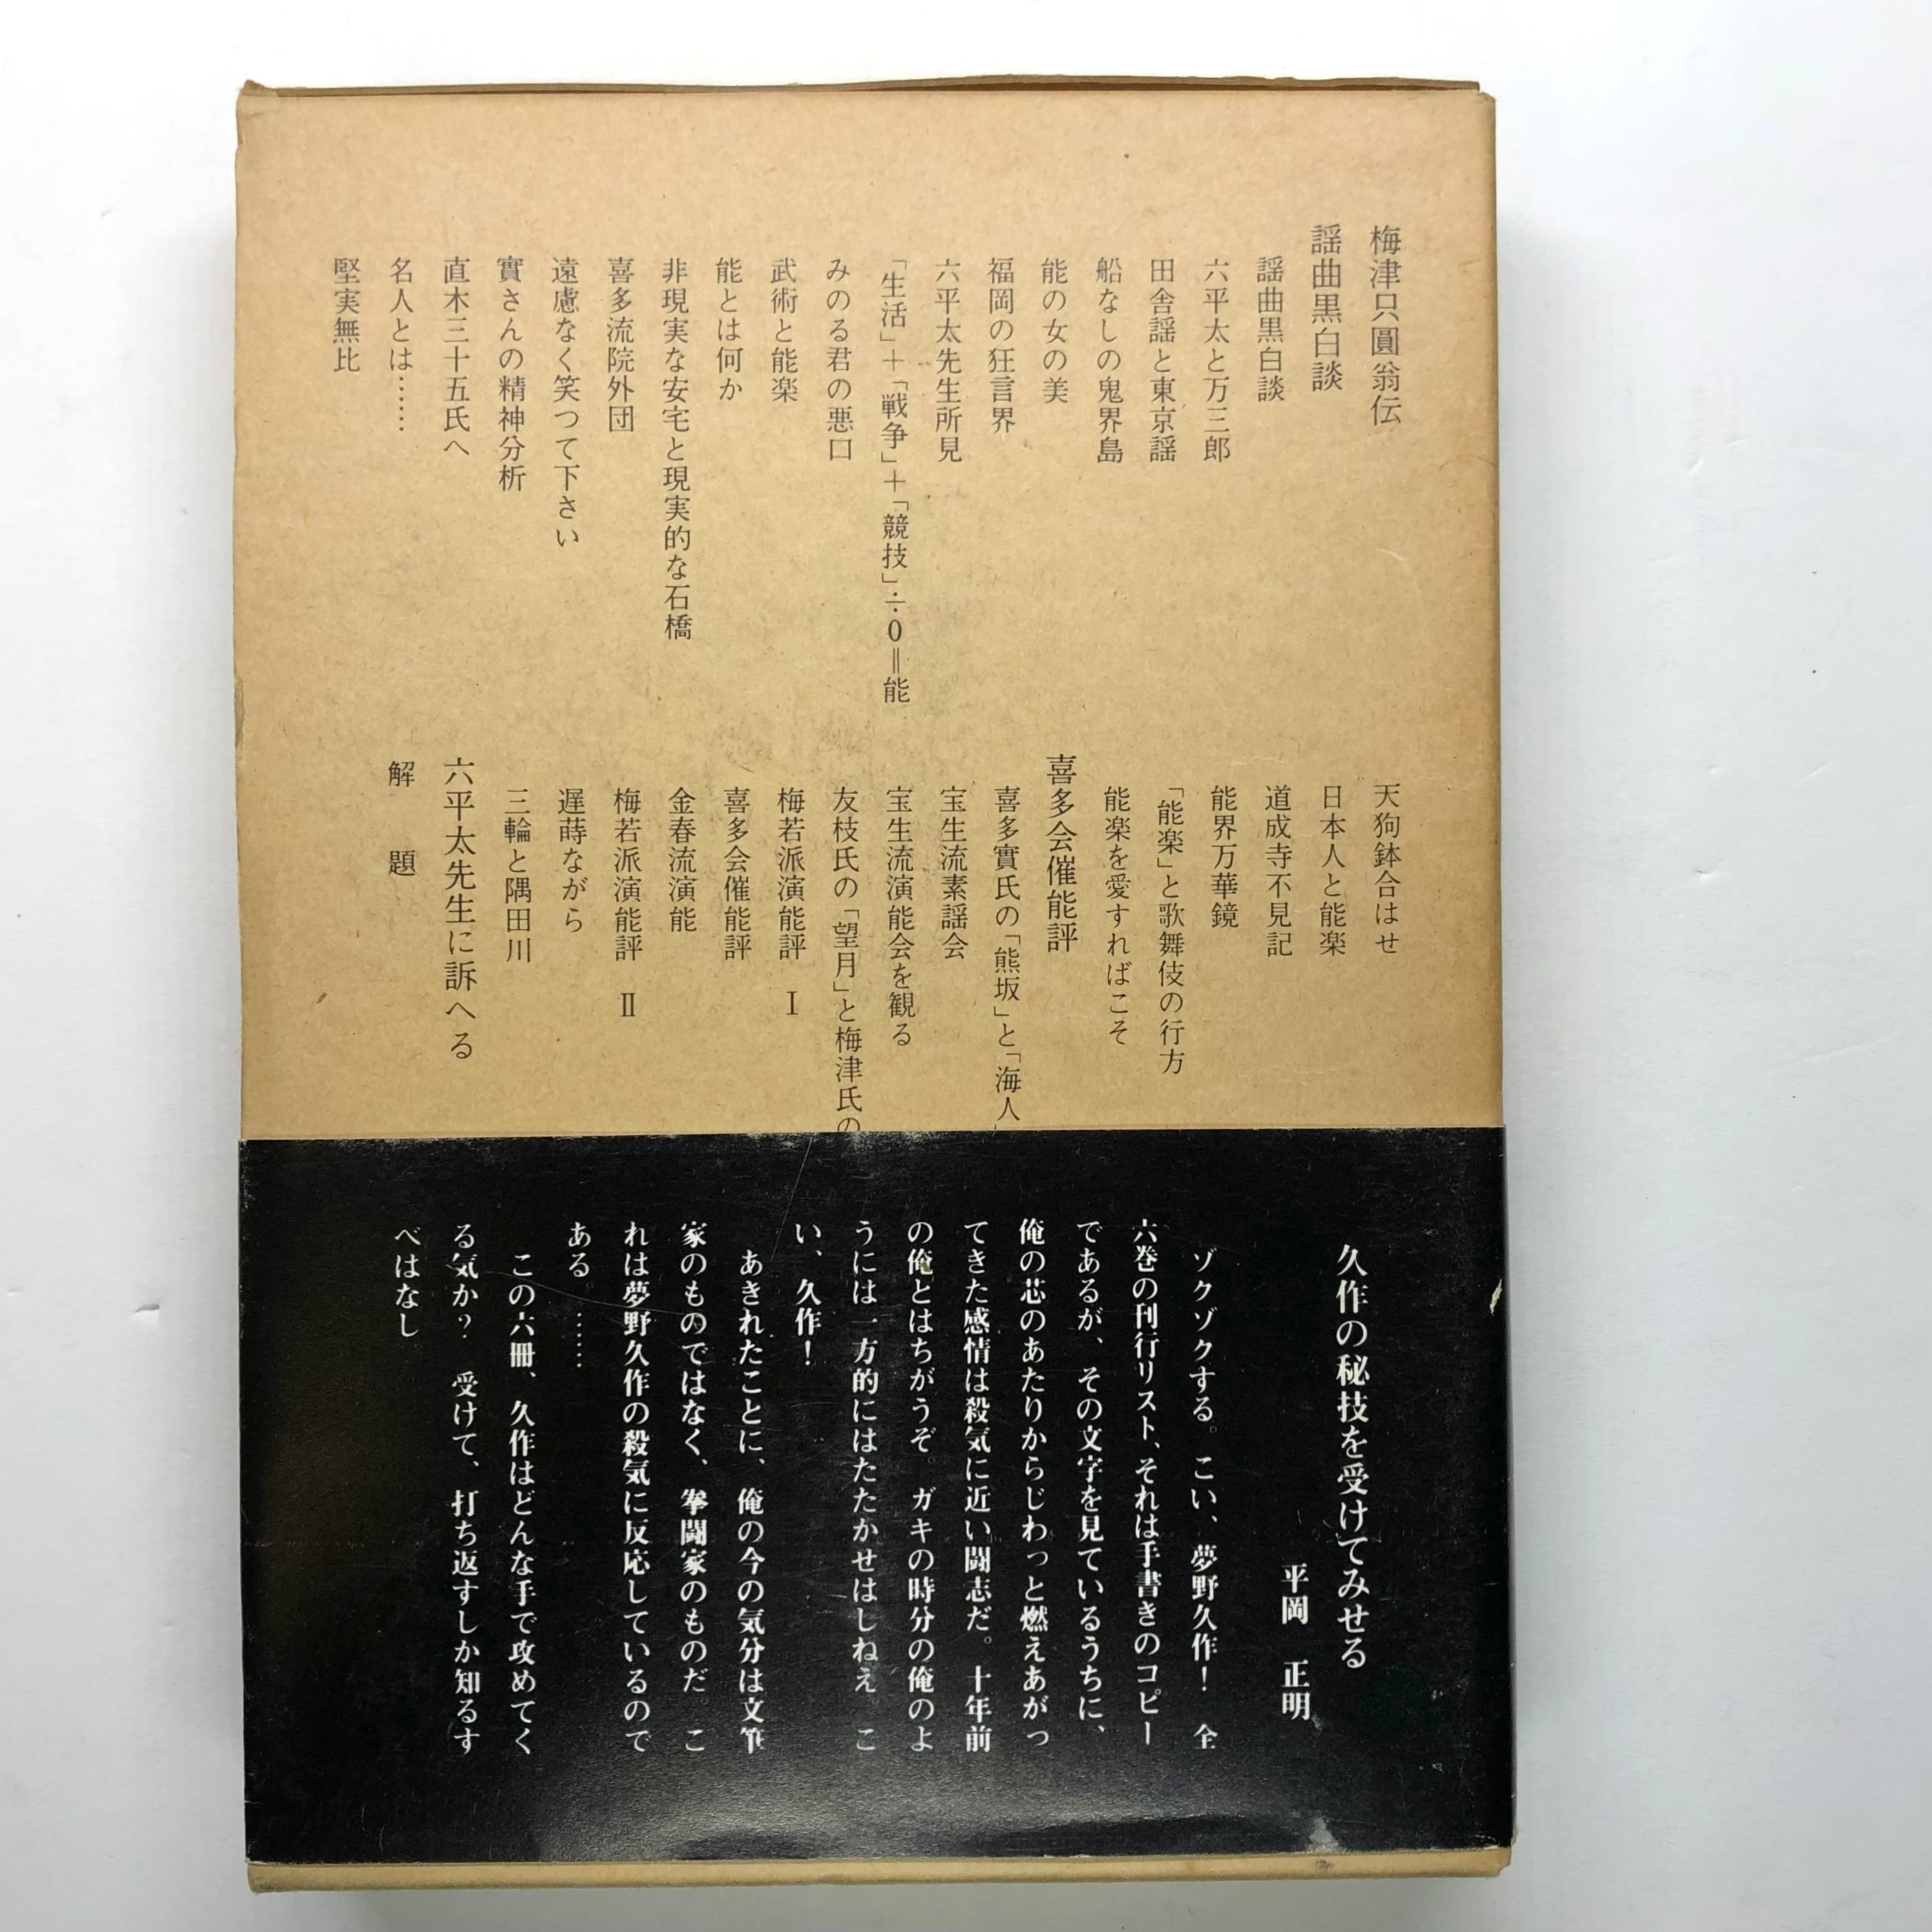 梅津只圓翁伝
謡曲黒白談
謡曲黒白談
六平太と万三郎
田舎謡と東京謡
船なしの鬼界島
能の女の美
福岡の狂言界
六平太先生所見
「生活」＋「戦争」＋「競技」÷０＝能
みのる君の悪口
武術と能楽
能とは何か
非現実な安宅と現実的な石橋
喜多流院外団
遠慮なく笑つて下さい
實さんの精神分析
直木三十五氏へ
名人とは……
堅実無比
天狗鉢合はせ
日本人と能楽
道成寺不見記
能界万華鏡
「能楽」と歌舞伎の行方
能楽を愛すればこそ
喜多会催能評
喜多實氏の「熊坂」と「海人」
宝生流素謡会
宝生流演能会を観る
友枝氏の「望月」と梅津氏の
梅若派演能評　Ⅰ
喜多会催能評
金春流演能
梅若派演能評　Ⅱ
遅蒔ながら
三輪と隅田川
六平太先生に訴へる
解　題
久作の秘技を受けてみせる
平岡　正明
ゾクゾクする。こい、夢野久作！　全
六巻の刊行リスト、それは手書きのコピー
であるが、その文字を見ているうちに、
俺の芯のあたりからじわっと燃えあがっ
てきた感情は殺気に近い闘志だ。十年前
の俺とはちがうぞ。ガキの時分の俺のよ
うには一方的にはたたかせはしねえ。こ
い、久作！
あきれたことに、俺の今の気分は文筆
家のものではなく、拳闘家のものだ。こ
れは夢野久作の殺気に反応しているので
ある。……
この六冊、久作はどんな手で攻めてく
る気か？　受けて、打ち返すしか知るす
べはなし